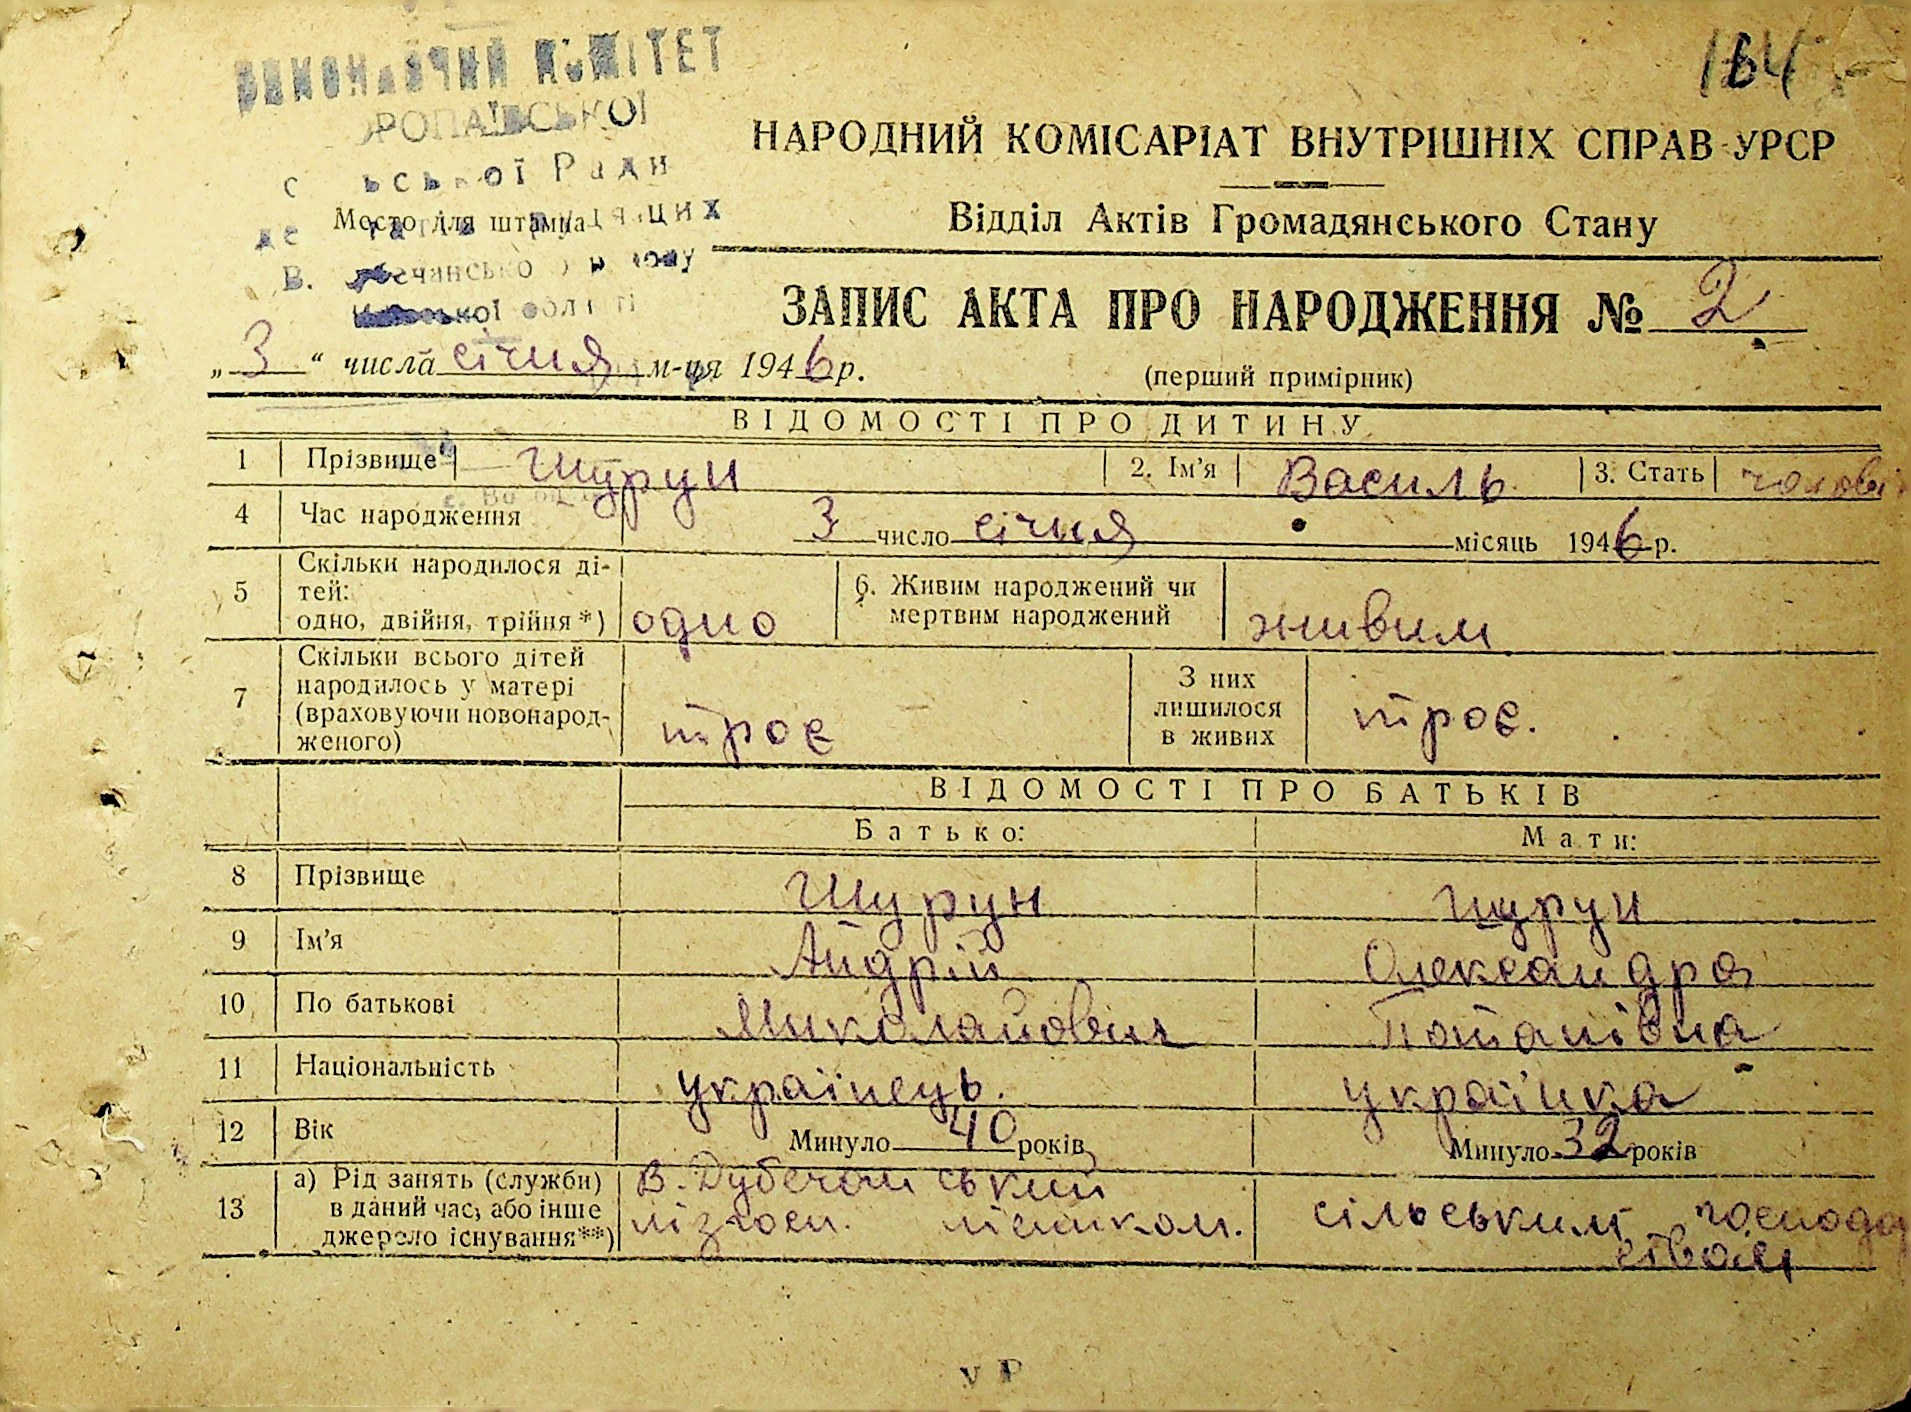 164
ВИКОНАВЧИЙ КОМІТЕТ
РОПАЇВСЬКОЇ
Ради
Место для штампа
НАРОДНИЙ КОМІСАРІАТ ВНУТРІШНІХ СПРАВ УРСР
Відділ Актів Громадянського Стану
ЗАПИС АКТА ПРО НАРОДЖЕННЯ № 2
„ 3 “ числа січня м-ця 1946 р.
(перший примірник)
ВІДОМОСТІ ПРО ДИТИНУ
1 Прізвище Щурун 2. Ім’я Василь 3. Стать чолові
4 Час народження 3 число січня місяць 1946 р.
5 Скільки народилося ді-
тей:
одно, двійня, трійня *) одно 6. Живим народжений чи
мертвим народжений живим
7 Скільки всього дітей
народилось у матері
(враховуючи новонарод-
женого) троє З них
лишилося
в живих троє.
ВІДОМОСТІ ПРО БАТЬКІВ
Батько: Мати:
8 Прізвище Щурун Щурун
9 Ім’я Андрій Олександра
10 По батькові Миколайович Потапівна
11 Національність українець. українка
12 Вік Минуло 40 років Минуло 32 років
13 а) Рід занять (служби)
в даний час, або інше
джерело існування**) В. Дубечанський
лізгосп. лісником. сільським господар
ством
У Р